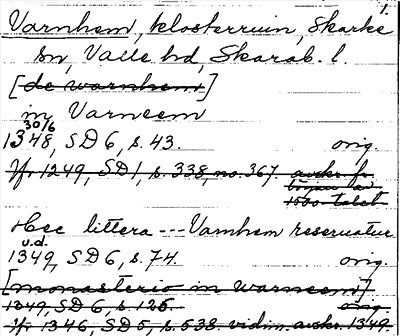 1.
Varnhem, klosterruin, Skarke
sn, Valle hd, Skarab. l.
[de warnhem]
in Varneem
30/6
1348, SD 6, s. 43. orig.
Jfr 1249, SD 1, s. 338, no. 367. avskr. fr.
början av
1500-talet
Hec littera --- Varnhem reservatur
u.d.
1349, SD 6, s. 74. orig.
[monasterio in warneem]
1349, SD 6, s. 125. orig.
Jfr 1346, SD 5, s. 538. vidim. avskr. 1349.